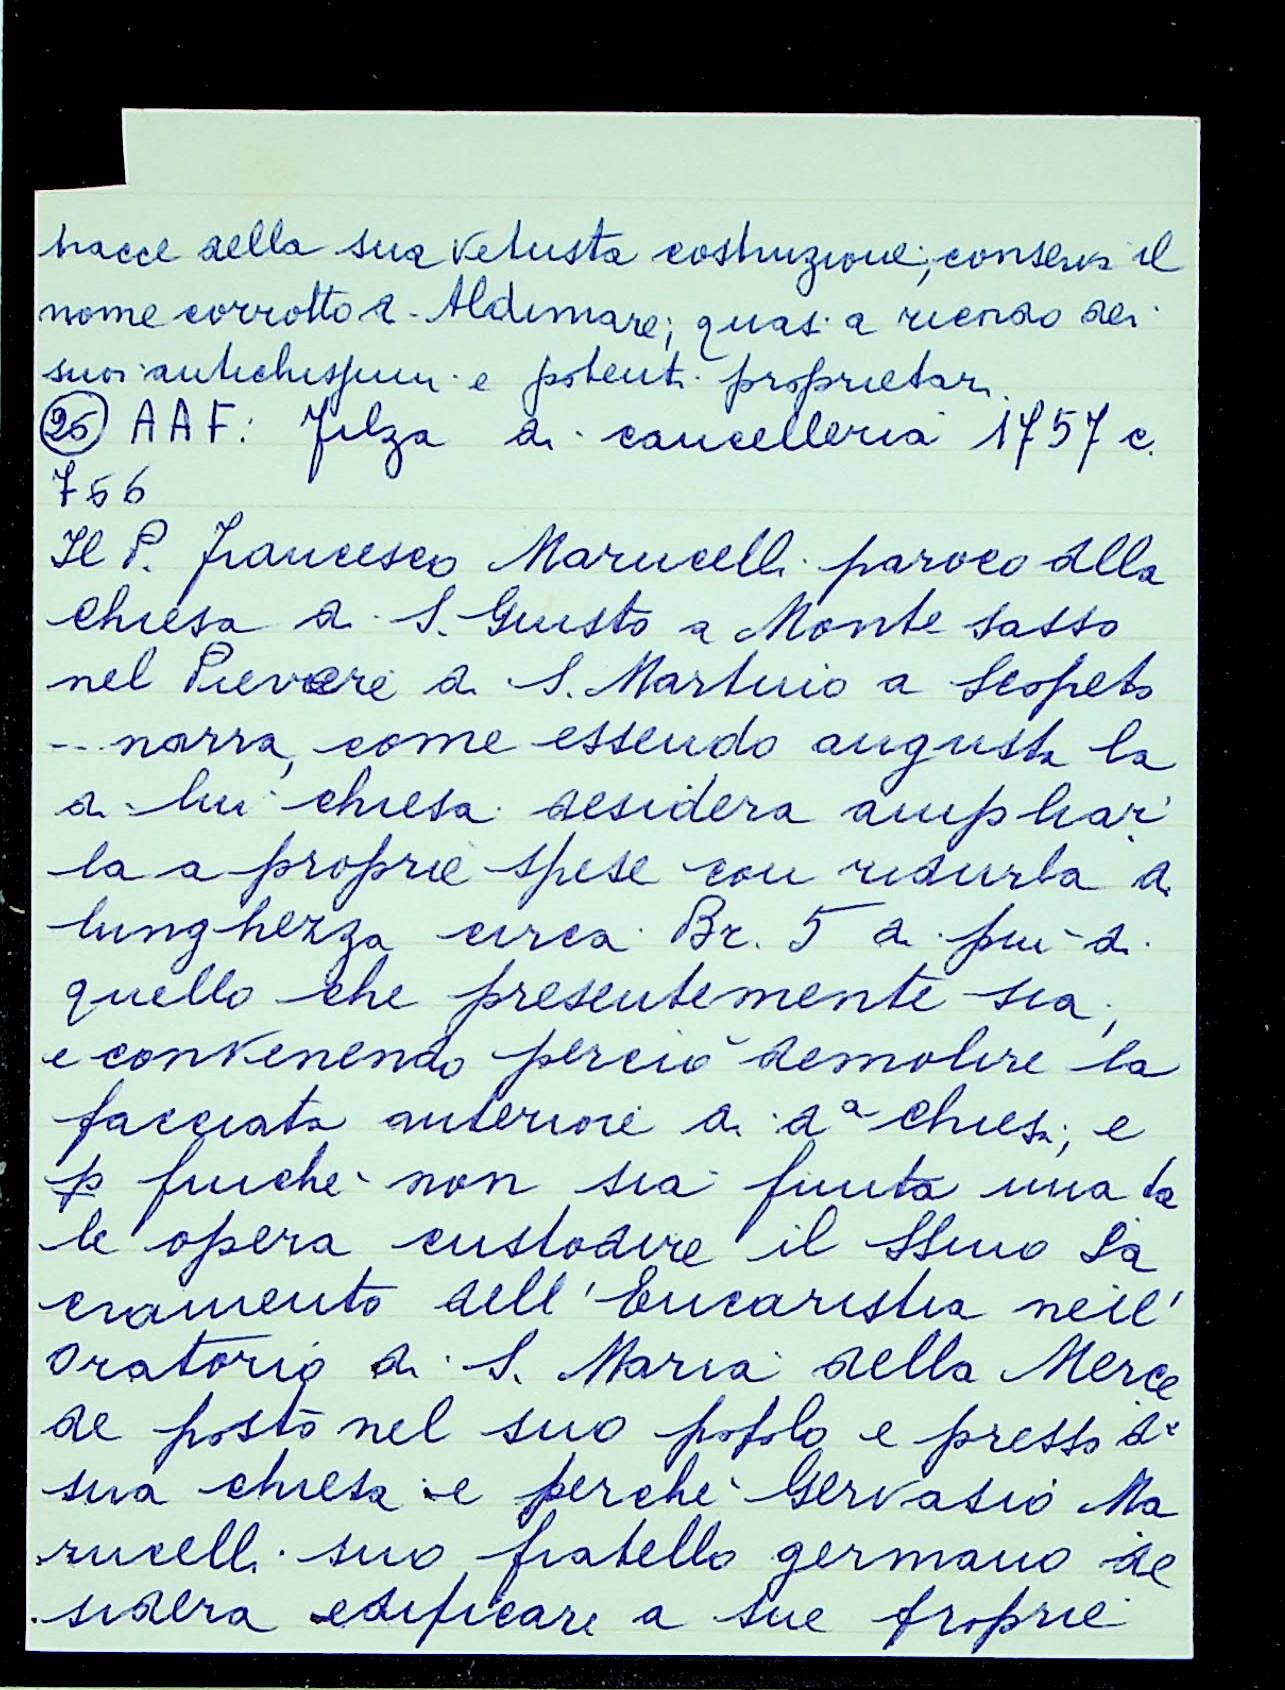 tracce della sua vetusta costruzione, conserva il
nome corrotto di Aldimare, quasi a ricordo dei
suoi antichissimi e potenti proprietari.
26 AAF: Filza di cancelleria 1757 c.
766
Il P. Francesco Marucelli paroco alla
chiesa di S. Giusto a Monte sasso
nel Piviere di S. Martino a Scopeto
... narra, come essendo angusta la
di lui chiesa desidera ampliar
la a proprie spese con ridurla di
lunghezza circa Br. 5 di più di
quello che presentemente sia,
e convenendo perciò demolire la
facciata anteriore di dª chiesa, e
p finché non sia finita una ta
le opera custodire il SSmo Sa
cramento dell'Eucaristia nell'
Oratorio di S. Maria della Merce
de posto nel suo popolo e presso dª
sua chiesa e perché Gervasio Ma
rucelli suo fratello germano de
sidera edificare a sue proprie